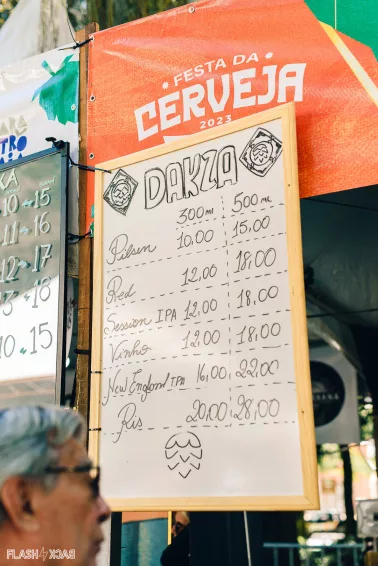 FESTA DA
CERVEJA
2023
DAKZA
300ml 500ml
Pilsen 10,00 15,00
Red 12,00 18,00
Session IPA 12,00 18,00
Vinho 12,00 18,00
New England IPA 16,00 22,00
Ris 20,00 28,00
10 15
11 16
12 17
18
10 15
FLASH BACK